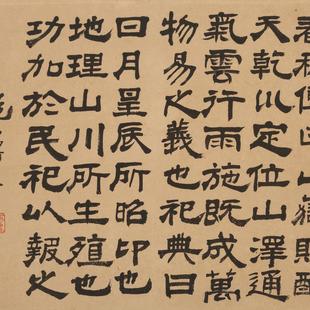 春秋傳曰山嶽則配
天乾巛定位山澤通
氣雲行雨施既成萬
物易之義也祀典曰
日月星辰所昭卬也
地理山川所生殖也
功加於民祀以報之